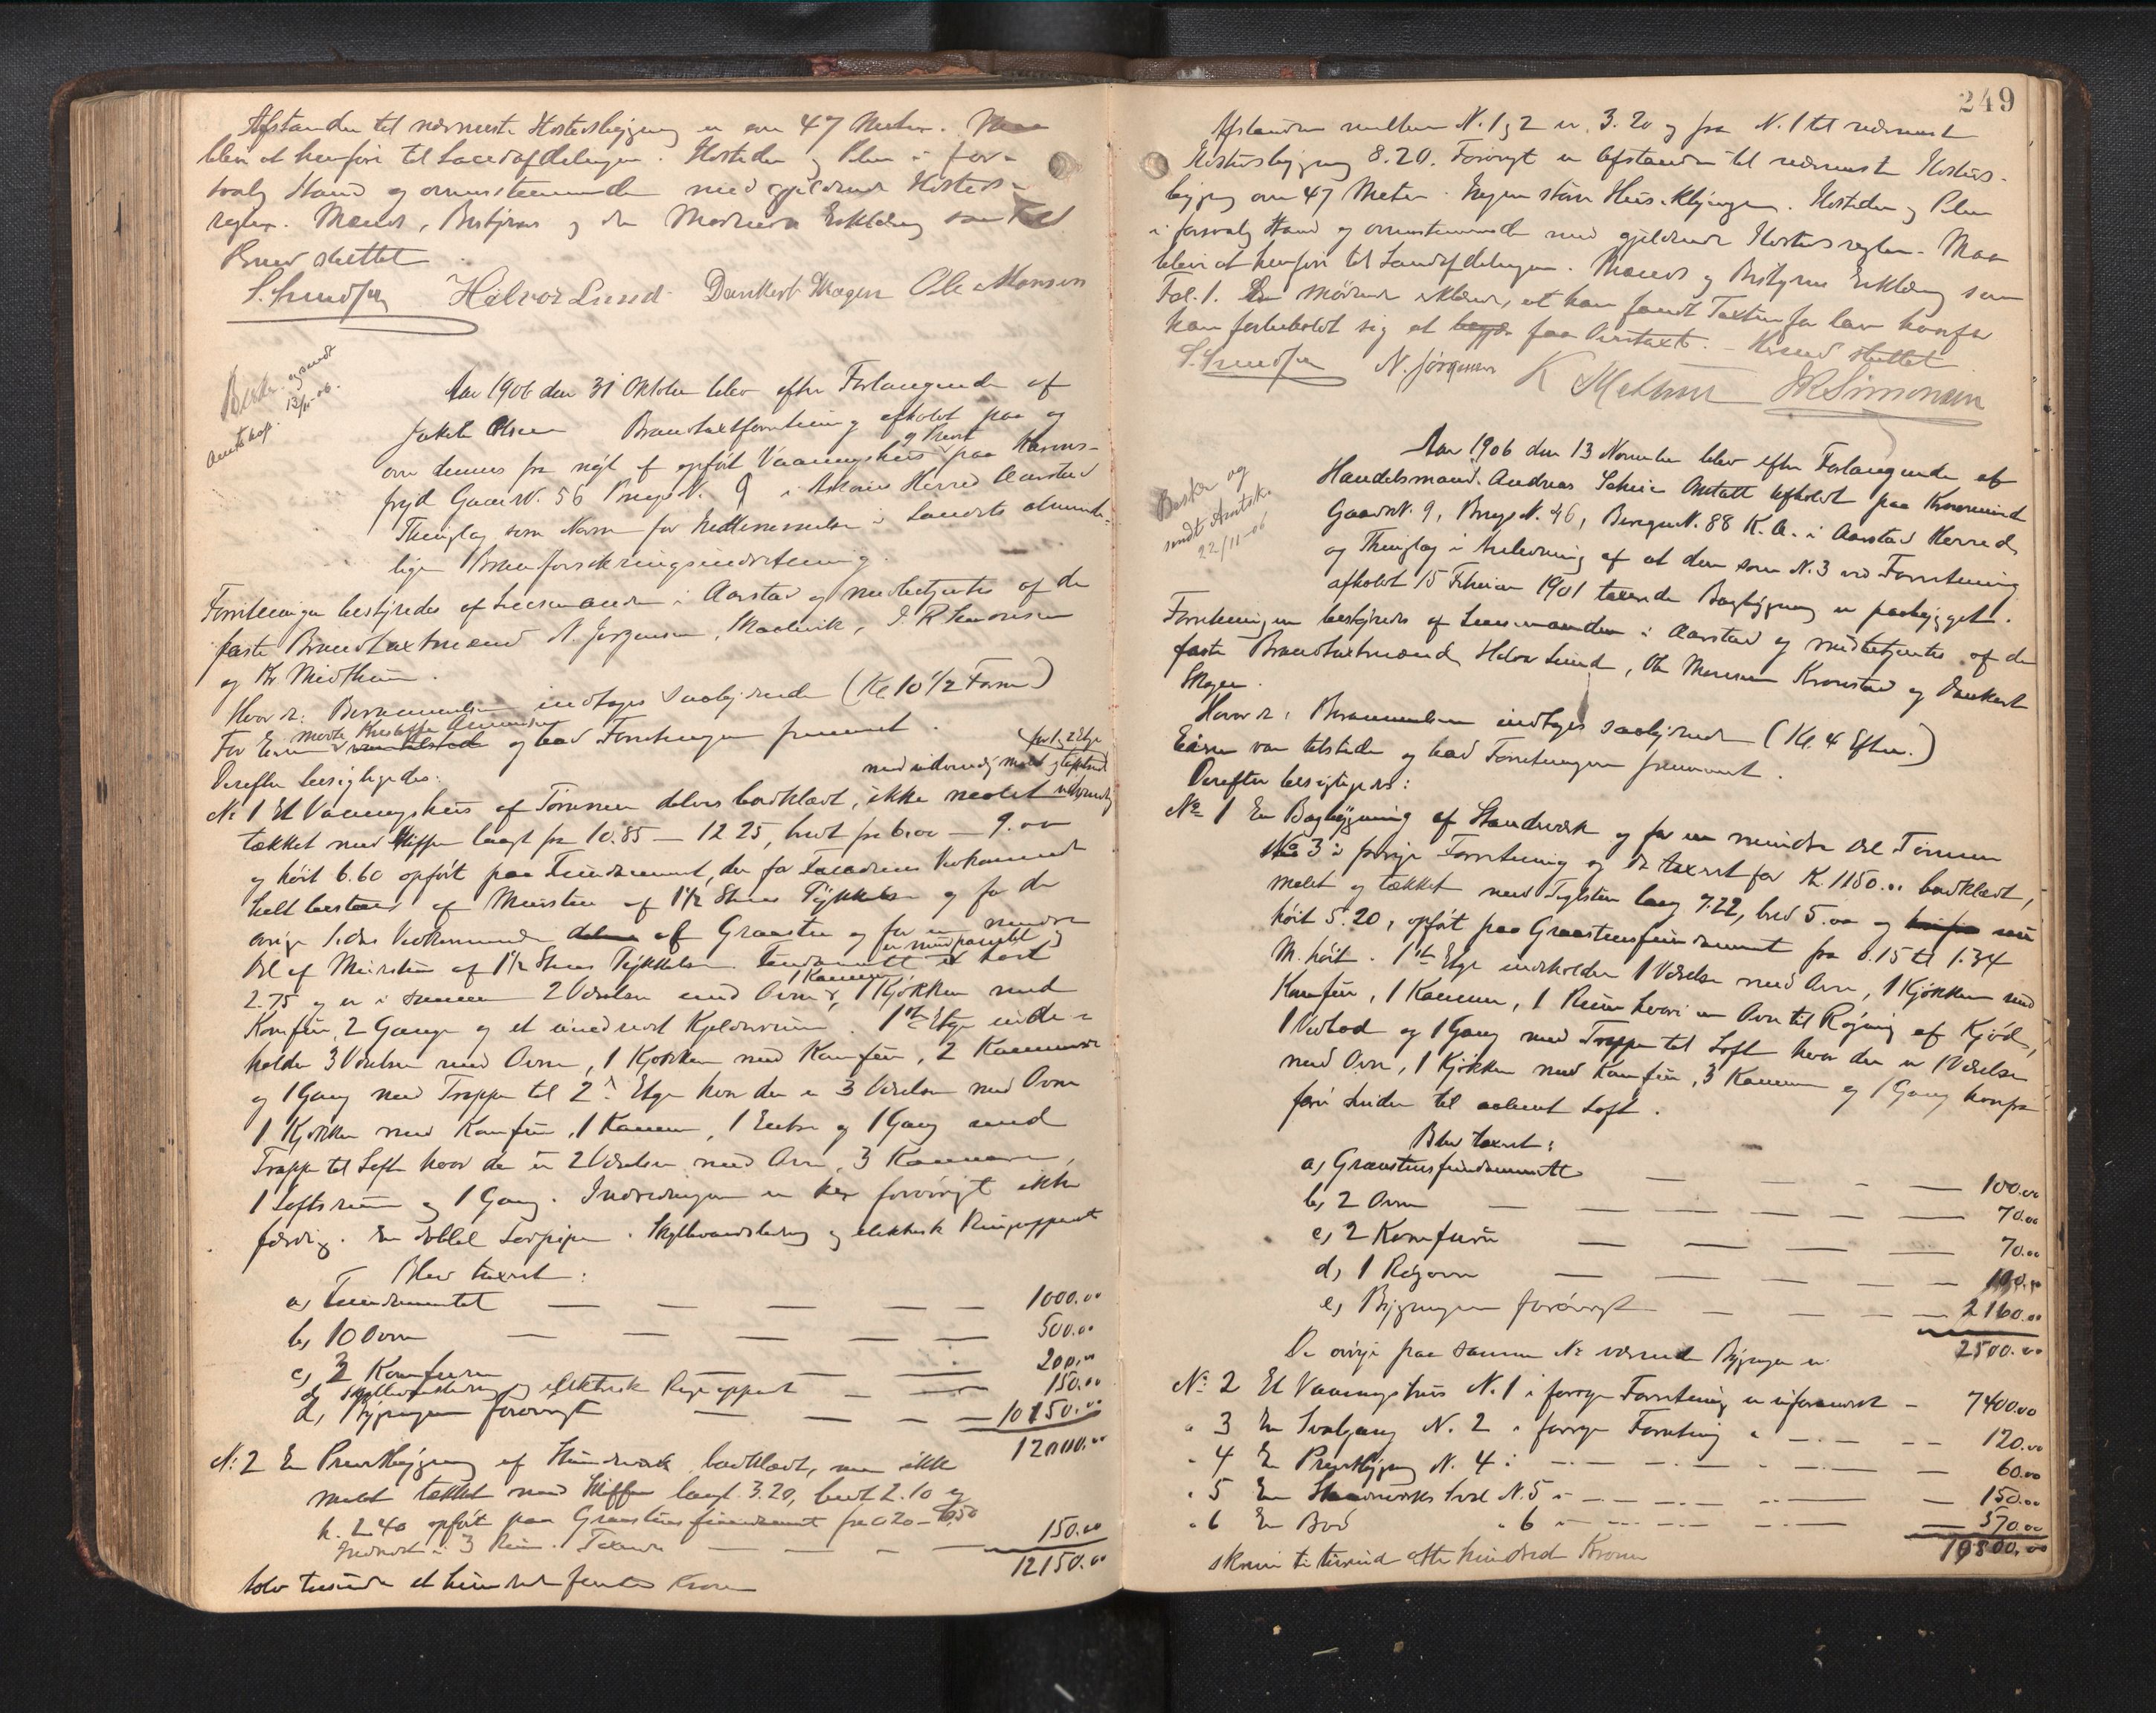 Afstanden til nærmeste Ilostedsbygning er om 47 Meter. Maa
blive at henføre til Landafdelingen. Ildsteder og Piber i for-
svarlig Stand og overensstemmende med gjældende Ilosteds-
regler. Mænds, Bestyrers og den Mødendes Erklæring som Fol
Brevd sluttet
Halvor Lund Dankert Skagen Ole Monsen
Beskr. og sendt
Amtskap. 13/11-06.
Aar 1906 den 31 Oktober blev efter Forlangende af
Jakob Olsen Brandtaxtforretning afholdt paa og
over dennes fra nyt af opført Vaaningshus og Privet paa Kron-
Gaards N. 56 Brugs N. 9 i Askøens Herred Aarstad
Thinglag som Norm for Indlemmelse i Landets alminde-
lige Brandforsikringsindretning.
Forretningen bestyredes af Lensmanden i Aarstad og medbetjentes af de
faste Brandtaxtmænd N. Jørgensen, J. R. Simonsen
og K. Midthun.
Hvor da: Berammelsen indtages saalydende (Kl. 10 1/2 Form.)
For Eieren mødte Kristoffer Amundsen og bad Forretningen fremmet.
Derefter besigtigedes:
for 1 og 2 Etge
med udvendig
No 1 Et Vaaningshus af Tømmer delvis bordklædt, ikke malet udvendig
tækket med Skiffer langt fra 10.85 — 12 25, bredt fra 6.00 — 9.00
og høit 6.60 opført paa Fundament, der for Facadens Vedkommende
helt bestaar af Mursten af 1 1/2 Stens Tykkelse og for de
øvrige Siders Vedkommende af Graasten og for en mindre
Del af Mursten af 1 1/2 Stens Tykkelse. Fundamentet er høit
2.75 og er i samme 2 Værelser med Ovne, 1 Kammer, 1 Kjøkken med
Komfur, 2 Gange og et Kjelderrum. 1ste Etge inde-
holder 3 Værelser med Ovne, 1 Kjøkken med Komfur, 2 Kammere
og 1 Gang med Trappe til 2. Etge hvor der er 3 Værelser med Ovne
1 Kjøkken med Komfur, 1 Kammer, 1 Entre og 1 Gang med
Trappe til Loft hvor der er 2 Værelser med Ovn, 3 Kammere,
1 Loftsrum og 1 Gang. Indredningen er her forøvrigt ikke
færdig. En dobbel Løbpipe. Skyllevandsledning og elektrisk Ringeapparat
Blev taxeret:
a, Fundamentet — — — — — 1000.00
b, 10 Ovne — — — — — 500.00
c, 3 Komfurer 200.00
d, Skyllevandsledning og elektrisk Ringeapparat — — 150.00
d, Bygningen forøvrigt — — — — 10150.00
12000.00
No 2 En Privetbygning af Standværk bordklædt, men ikke
malet tækket med Skiffer langt 3.20, bredt 2.10 og
h. 2.40 opført paa Graastensfundament fra 0.20 — 0.50
Indredet i 3 Rum. Taxeret — — — 150.00
12150.00
tolv tusinde et hundrede femti Kroner
249
Afstanden mellem N. 1 og 2 er 3.20 og fra N. 1 til nærmeste
Ilostedsbygning 8.20. Forøvrigt er Afstanden til nærmeste Ilosteds-
bygning om 47 Meter. Ingen større Hus-klynger. Ildsteder og Piber
i forsvarlig Stand og overensstemmende med gjeldende Ilostedsregler. Maa
blive at henføre til Landafdelingen. Mænds og Bestyrers Erklæring som
Fol. 1. Den Mødende erklærede, at han fandt Taxten for lav hvorfor
han forbeholdt sig at faa Overtaxt. — Brevd sluttet
N. Jørgensen K Midthun J R Simonsen
Beskr og
sendt Amtsk.
22/11-06
Aar 1906 den 13 November blev efter Forlangende af
Handelsmand Andreas Takst afholdt paa Kronminde
Gaards N. 9, Brugs N. 46, Bergens N. 88 K. A. i Aarstad Herred
og Thinglag i Anledning af at den som N. 3 ved Forretning
afholdt 15 Februar 1901 taxerede Bagbygning er paabygget.
Forretningen bestyredes af Lensmanden i Aarstad og medbetjentes af de
faste Brandtaxtmænd Halvor Lund, Ole Monsen Kronstad og Dankert
Skagen.
Hvor da: Berammelsen indtages saalydende (Kl. 4 Efterm.)
Eieren var tilstede og bad Forretningen fremmet.
Derefter besigtigedes:
No 1 En Bagbygning af Standværk og for en mindre Del Tømmer
No 3 i forrige Forretning og da taxeret for Kr. 1150.00 bordklædt,
malet og tækket med Teglsten lang 7.22, bred 5.00 og
høit 5.20, opført paa Graastensfundament fra 0.15 til 1.34
M. høit. 1ste Etge indeholder 1 Værelse med Ovn, 1 Kjøkken med
Komfur, 1 Kammer, 1 Rum hvori en Ovn til Røgning af Kjød,
1 Vedbod og 1 Gang med Trappe til Loft hvor der er 1 Værelse
med Ovn, 1 Kjøkken med Komfur, 3 Kammere og 1 Gang hvorfra
til aabent Loft.
Blev taxeret:
a, Graastensfundamentet — — — 100.00
b, 2 Ovne — — — — — 70.00
c, 2 Komfurer — — — — 70.00
d, 1 Røgovn — — — — 100.00
e, Bygningen forøvrigt — — — 2160.00
2500.00
De øvrige paa samme No værende Bygninger er
No 2 Et Vaaningshus N. 1 i forrige Forretning er uforandret — 7400.00
" 3 En Svalgang N. 2 i forrige Forretning " — — 120.00
" 4 En Privetbygning N. 4 i — — — 60.00
" 5 En Standværks N. 5 i — — — 150.00
" 6 En Bod " 6 i — — — 570.00
10800.00
skriver ti tusind otte hundred Kroner